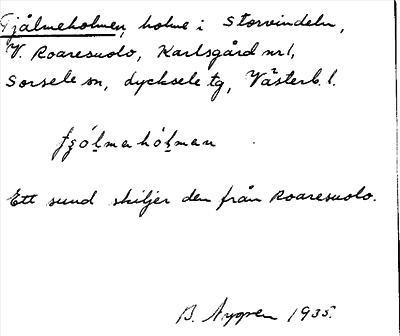 Tjålmeholmen, holme i Storvindeln,
V. Roaresuolo, Karlsgård nr 1,
Sorsele sn, Lycksele tg, Västerb. l.
Ett sund skiljer den från Roaresuolo.
B. Nygren 1935.